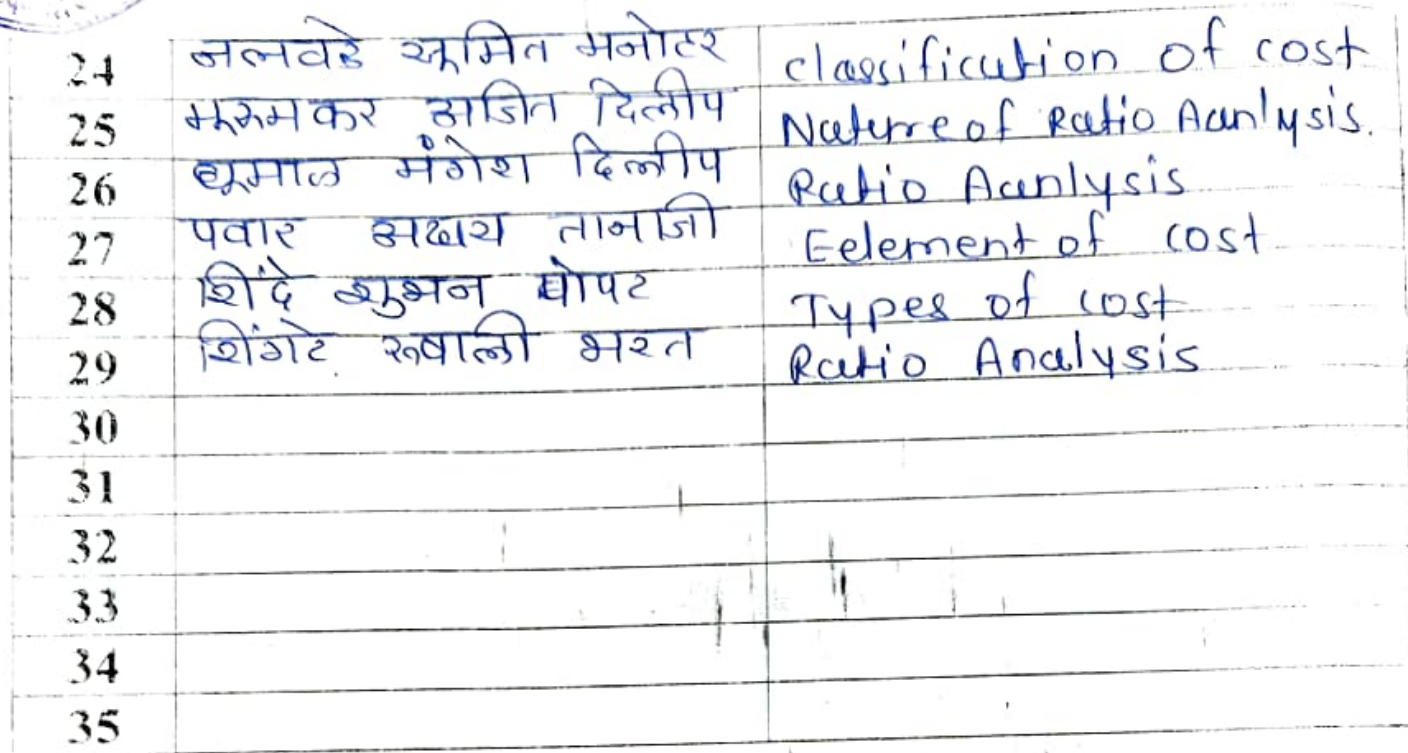 24 नलवडे सुमित मनोहर classification of cost
25 मरुमकर अजित दिलीप Nature of Ratio Aanlysis.
26 धुमाळ मंगेश दिलीप Ratio Aanlysis
27 पवार अक्षय तानाजी Eelement of cost
28 शिंदे शुभन पोपट Types of cost
29 शिंगटे रुपाली भरत Ratio Analysis
30
31
32
33
34
35